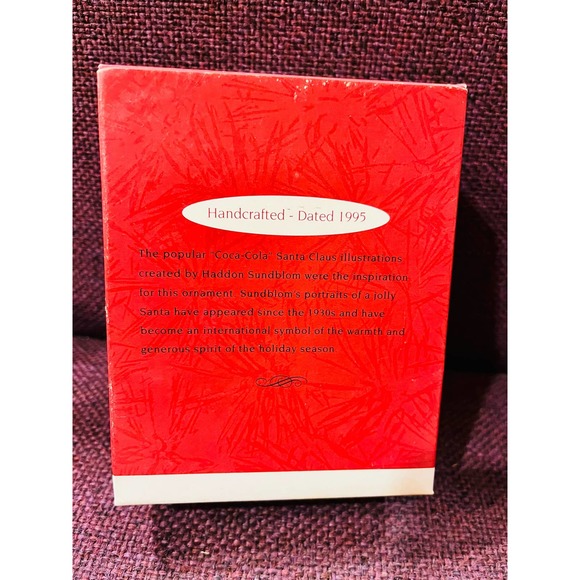 Handcrafted - Dated 1995
The popular "Coca-Cola" Santa Claus illustrations
created by Haddon Sundblom were the inspiration
for this ornament. Sundblom's portraits of a jolly
Santa have appeared since the 1930s and have
become an international symbol of the warmth and
generous spirit of the holiday season.